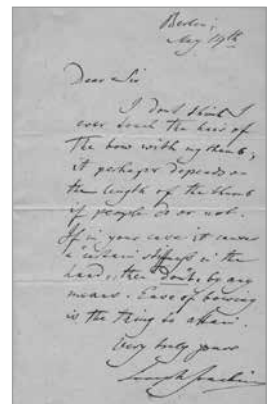 Berlin;
May 19th
Dear Sir
I don't think I
ever touch the hair of
the bow with my thumb;
it perhaps depends on
the length of the thumb
if people do or not.
If in your case it causes
a certain stiffness in the
hand, then don't, by any
means. Ease of bowing
is the thing to attain.
Very truly yours
Joseph Joachim